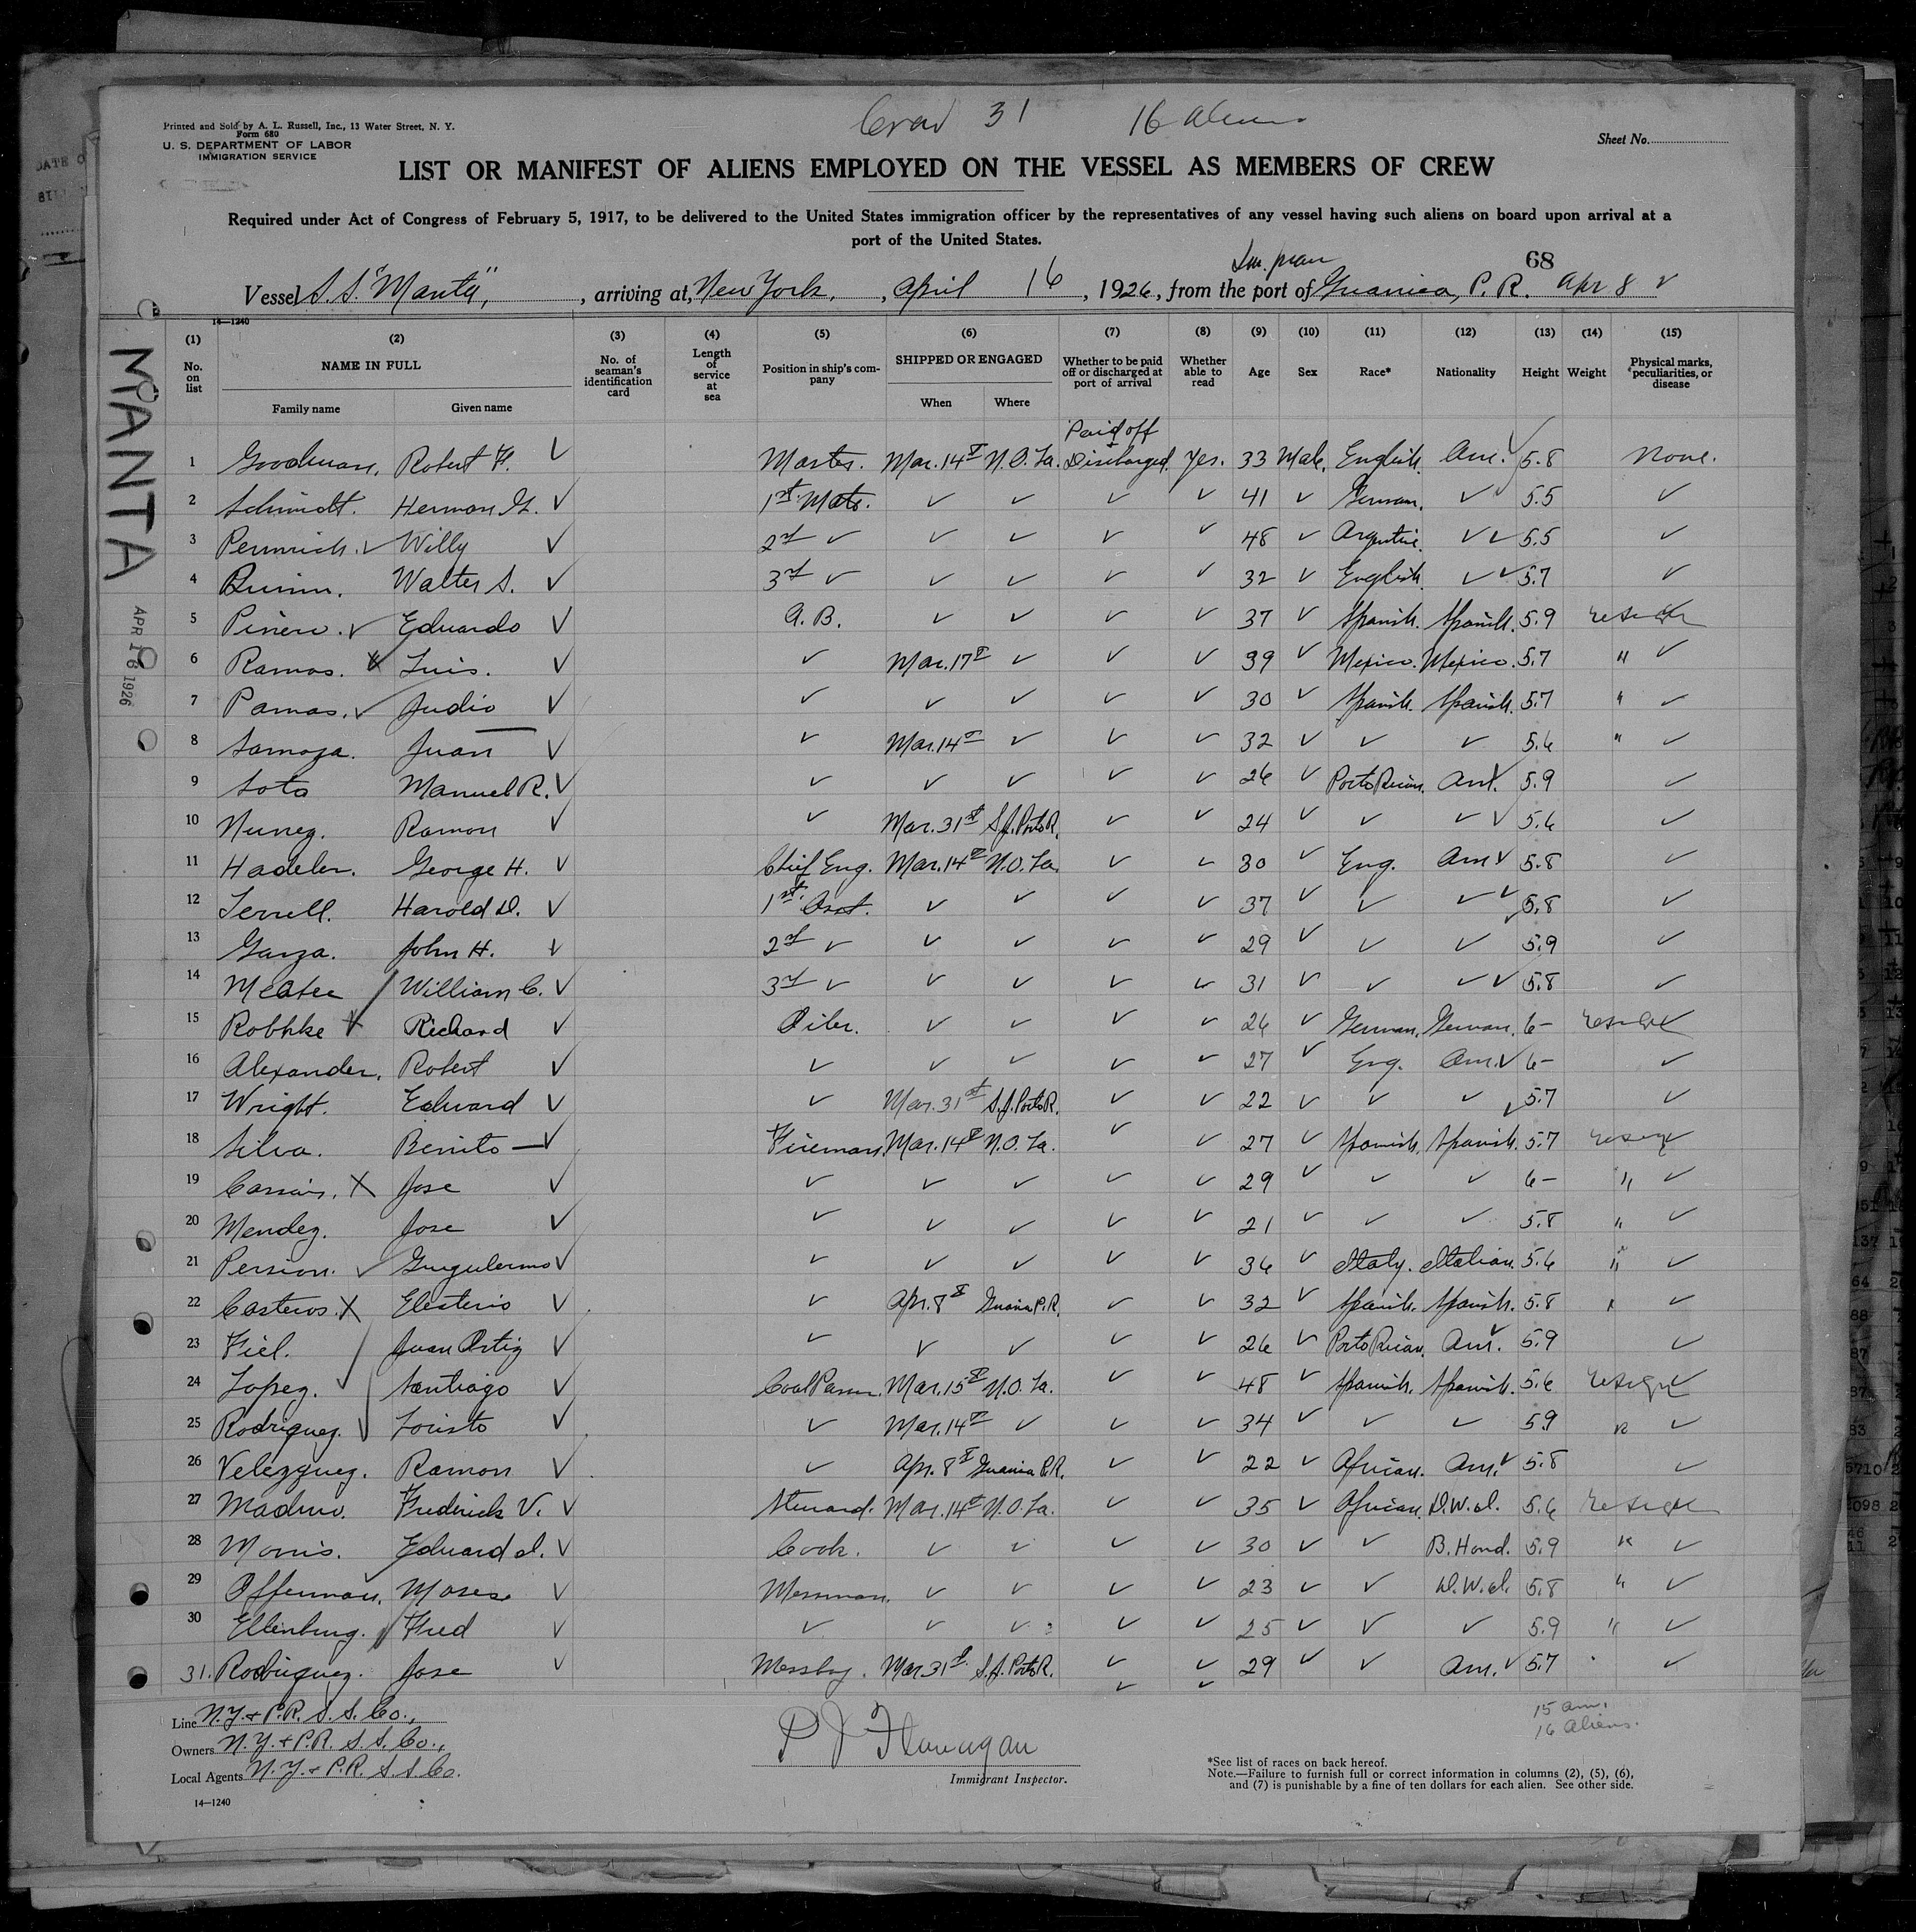 Crew 31 16 aliens
Printed and Sold by A. L. Russell, Inc., 13 Water Street, N. Y.
Form 680
U. S. DEPARTMENT OF LABOR
IMMIGRATION SERVICE
Sheet No.
LIST OR MANIFEST OF ALIENS EMPLOYED ON THE VESSEL AS MEMBERS OF CREW
Required under Act of Congress of February 5, 1917, to be delivered to the United States immigration officer by the representatives of any vessel having such aliens on board upon arrival at a
port of the United States.
68
Vessel S.S. "Manta", arriving at New York, April 16, 1926, from the port of Guanica, P.R. Apr 8 ✓
14—1240
MANTA
APR 16 1926
(1) (2) (3) (4) (5) (6) (7) (8) (9) (10) (11) (12) (13) (14) (15)
No. on list NAME IN FULL Family name Given name No. of seaman's identification card Length of service at sea Position in ship's company SHIPPED OR ENGAGED When Where Whether to be paid off or discharged at port of arrival Whether able to read Age Sex Race* Nationality Height Weight Physical marks, peculiarities, or disease
Paid off
1 Goodman, Robert F. ✓ Master. Mar. 14th N.O. La. Discharged. Yes. 33 Male. English. Am. ✓ 5.8 None.
2 Schmidt. Herman G. ✓ 1st Mate. ✓ ✓ ✓ ✓ 41 ✓ German. ✓ ✓ 5.5 ✓
3 ✓ Willy ✓ 2nd ✓ ✓ ✓ ✓ ✓ 48 ✓ Argentine. ✓ ✓ 5.5 ✓
4 Walter S. ✓ 3rd ✓ ✓ ✓ ✓ ✓ 32 ✓ English ✓ ✓ 5.7 ✓
5 Pineiro. ✓ Eduardo ✓ A.B. ✓ ✓ ✓ ✓ 37 ✓ Spanish. Spanish. 5.9 ✓
6 Ramos. Luis. ✓ ✓ Mar. 17th ✓ ✓ ✓ 39 ✓ Mexico. Mexico. 5.7 " ✓
7 Pamas. ✓ Judio ✓ ✓ ✓ ✓ ✓ ✓ 30 ✓ Spanish. Spanish. 5.7 " ✓
8 Samoza. Juan ✓ ✓ Mar. 14th ✓ ✓ ✓ 32 ✓ ✓ ✓ 5.6 " ✓
9 Soto Manuel R. ✓ ✓ ✓ ✓ ✓ ✓ 26 ✓ Porto Rican. Am. ✓ 5.9 ✓
10 Nunez. Ramon ✓ ✓ Mar. 31st S.J. Porto R. ✓ ✓ 24 ✓ ✓ ✓ ✓ 5.6 ✓
11 Hadeler. George H. ✓ Chief Eng. Mar. 14th N.O. La. ✓ ✓ 30 ✓ Eng. Am ✓ 5.8 ✓
12 Terrell. Harold D. ✓ 1st Asst. ✓ ✓ ✓ ✓ 37 ✓ ✓ ✓ ✓ 5.8 ✓
13 Garza. John H. ✓ 2nd ✓ ✓ ✓ ✓ ✓ 29 ✓ ✓ ✓ ✓ 5.9 ✓
14 McAtee William C. ✓ 3rd ✓ ✓ ✓ ✓ ✓ 31 ✓ ✓ ✓ ✓ 5.8 ✓
15 Robhke Richard ✓ Oiler. ✓ ✓ ✓ ✓ 26 ✓ German. German. 6- ✓
16 Alexander. Robert ✓ ✓ ✓ ✓ ✓ ✓ 27 ✓ Eng. Am. ✓ 6- ✓
17 Wright. Edward ✓ ✓ Mar. 31st S.J. Porto R. ✓ ✓ 22 ✓ ✓ ✓ ✓ 5.7
18 Silva. Benito ✓ Fireman. Mar. 14th N.O. La. ✓ ✓ 27 ✓ Spanish. Spanish. 5.7 ✓
19 X Jose ✓ ✓ ✓ ✓ ✓ ✓ 29 ✓ ✓ ✓ 6- " ✓
20 Mendez. Jose ✓ ✓ ✓ ✓ ✓ ✓ 21 ✓ ✓ ✓ 5.8 " ✓
21 Persion. ✓ Gugulermo ✓ ✓ ✓ ✓ ✓ ✓ 36 ✓ Italy. Italian. 5.6 " ✓
22 Casteros. X Elesterio ✓ ✓ Apr. 8th Guanica P.R. ✓ ✓ 32 ✓ Spanish. Spanish. 5.8 " ✓
23 Fiel. Juan Ortiz ✓ ✓ ✓ ✓ ✓ ✓ 26 ✓ Porto Rican. Am. ✓ 5.9 ✓
24 Lopez. ✓ Santiago ✓ Coal Passer. Mar. 15th N.O. La. ✓ ✓ 48 ✓ Spanish. Spanish. 5.6 ✓
25 Rodriguez. ✓ ✓ ✓ Mar. 14th ✓ ✓ ✓ 34 ✓ ✓ ✓ 5.9 " ✓
26 Velezquez. Ramon ✓ ✓ Apr. 8th Guanica P.R. ✓ ✓ 22 ✓ African. Am. ✓ 5.8 ✓
27 Maduro. Frederick V. ✓ Steward. Mar. 14th N.O. La. ✓ ✓ 35 ✓ African. D.W.I. 5.6
28 Morris. Edward I. ✓ Cook. ✓ ✓ ✓ ✓ 30 ✓ ✓ B. Hond. 5.9 " ✓
29 Offerman. Moses ✓ Messman. ✓ ✓ ✓ ✓ 23 ✓ ✓ D.W.I. 5.8 " ✓
30 Ellenburg. Fred ✓ ✓ ✓ ✓ ✓ ✓ 25 ✓ ✓ ✓ 5.9 " ✓
31. Rodriguez. Jose ✓ Messboy. Mar 31st S.J. Porto R. ✓ ✓ 29 ✓ ✓ Am. ✓ 5.7 ✓
15 am.
16 Aliens.
Line N.Y. & P.R. S.S. Co.,
Owners N.Y. & P.R. S.S. Co.,
Local Agents N.Y. & P.R. S.S. Co.
P J Flanagan
Immigrant Inspector.
*See list of races on back hereof.
Note.—Failure to furnish full or correct information in columns (2), (5), (6),
and (7) is punishable by a fine of ten dollars for each alien. See other side.
14—1240